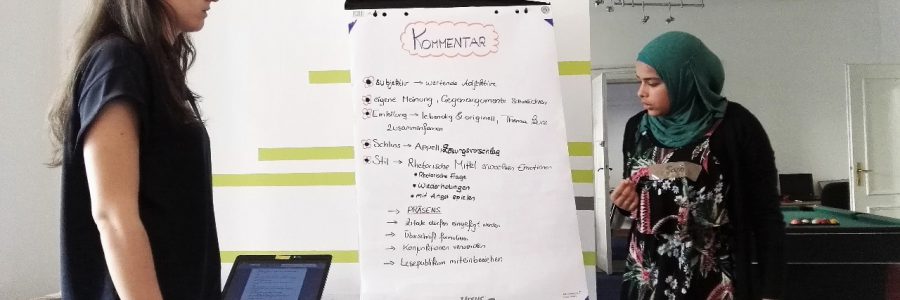 KOMMENTAR
Subjektiv → wertende Adjektive
eigene Meinung, Gegenargumente schwächen
Einleitung → lebendig & originell, Thema kurz
zusammenfassen
Schluss → Appell, Lösungsvorschlag
Stil → Rhetorische Mittel erwecken Emotionen
• Rhetorische Frage
• Wiederholungen
• mit Angst spielen
→ PRÄSENS
→ Zitate dürfen eingefügt werden
→ Überschrift formulieren
→ Konjunktionen verwenden
→ Lesepublikum miteinbeziehen